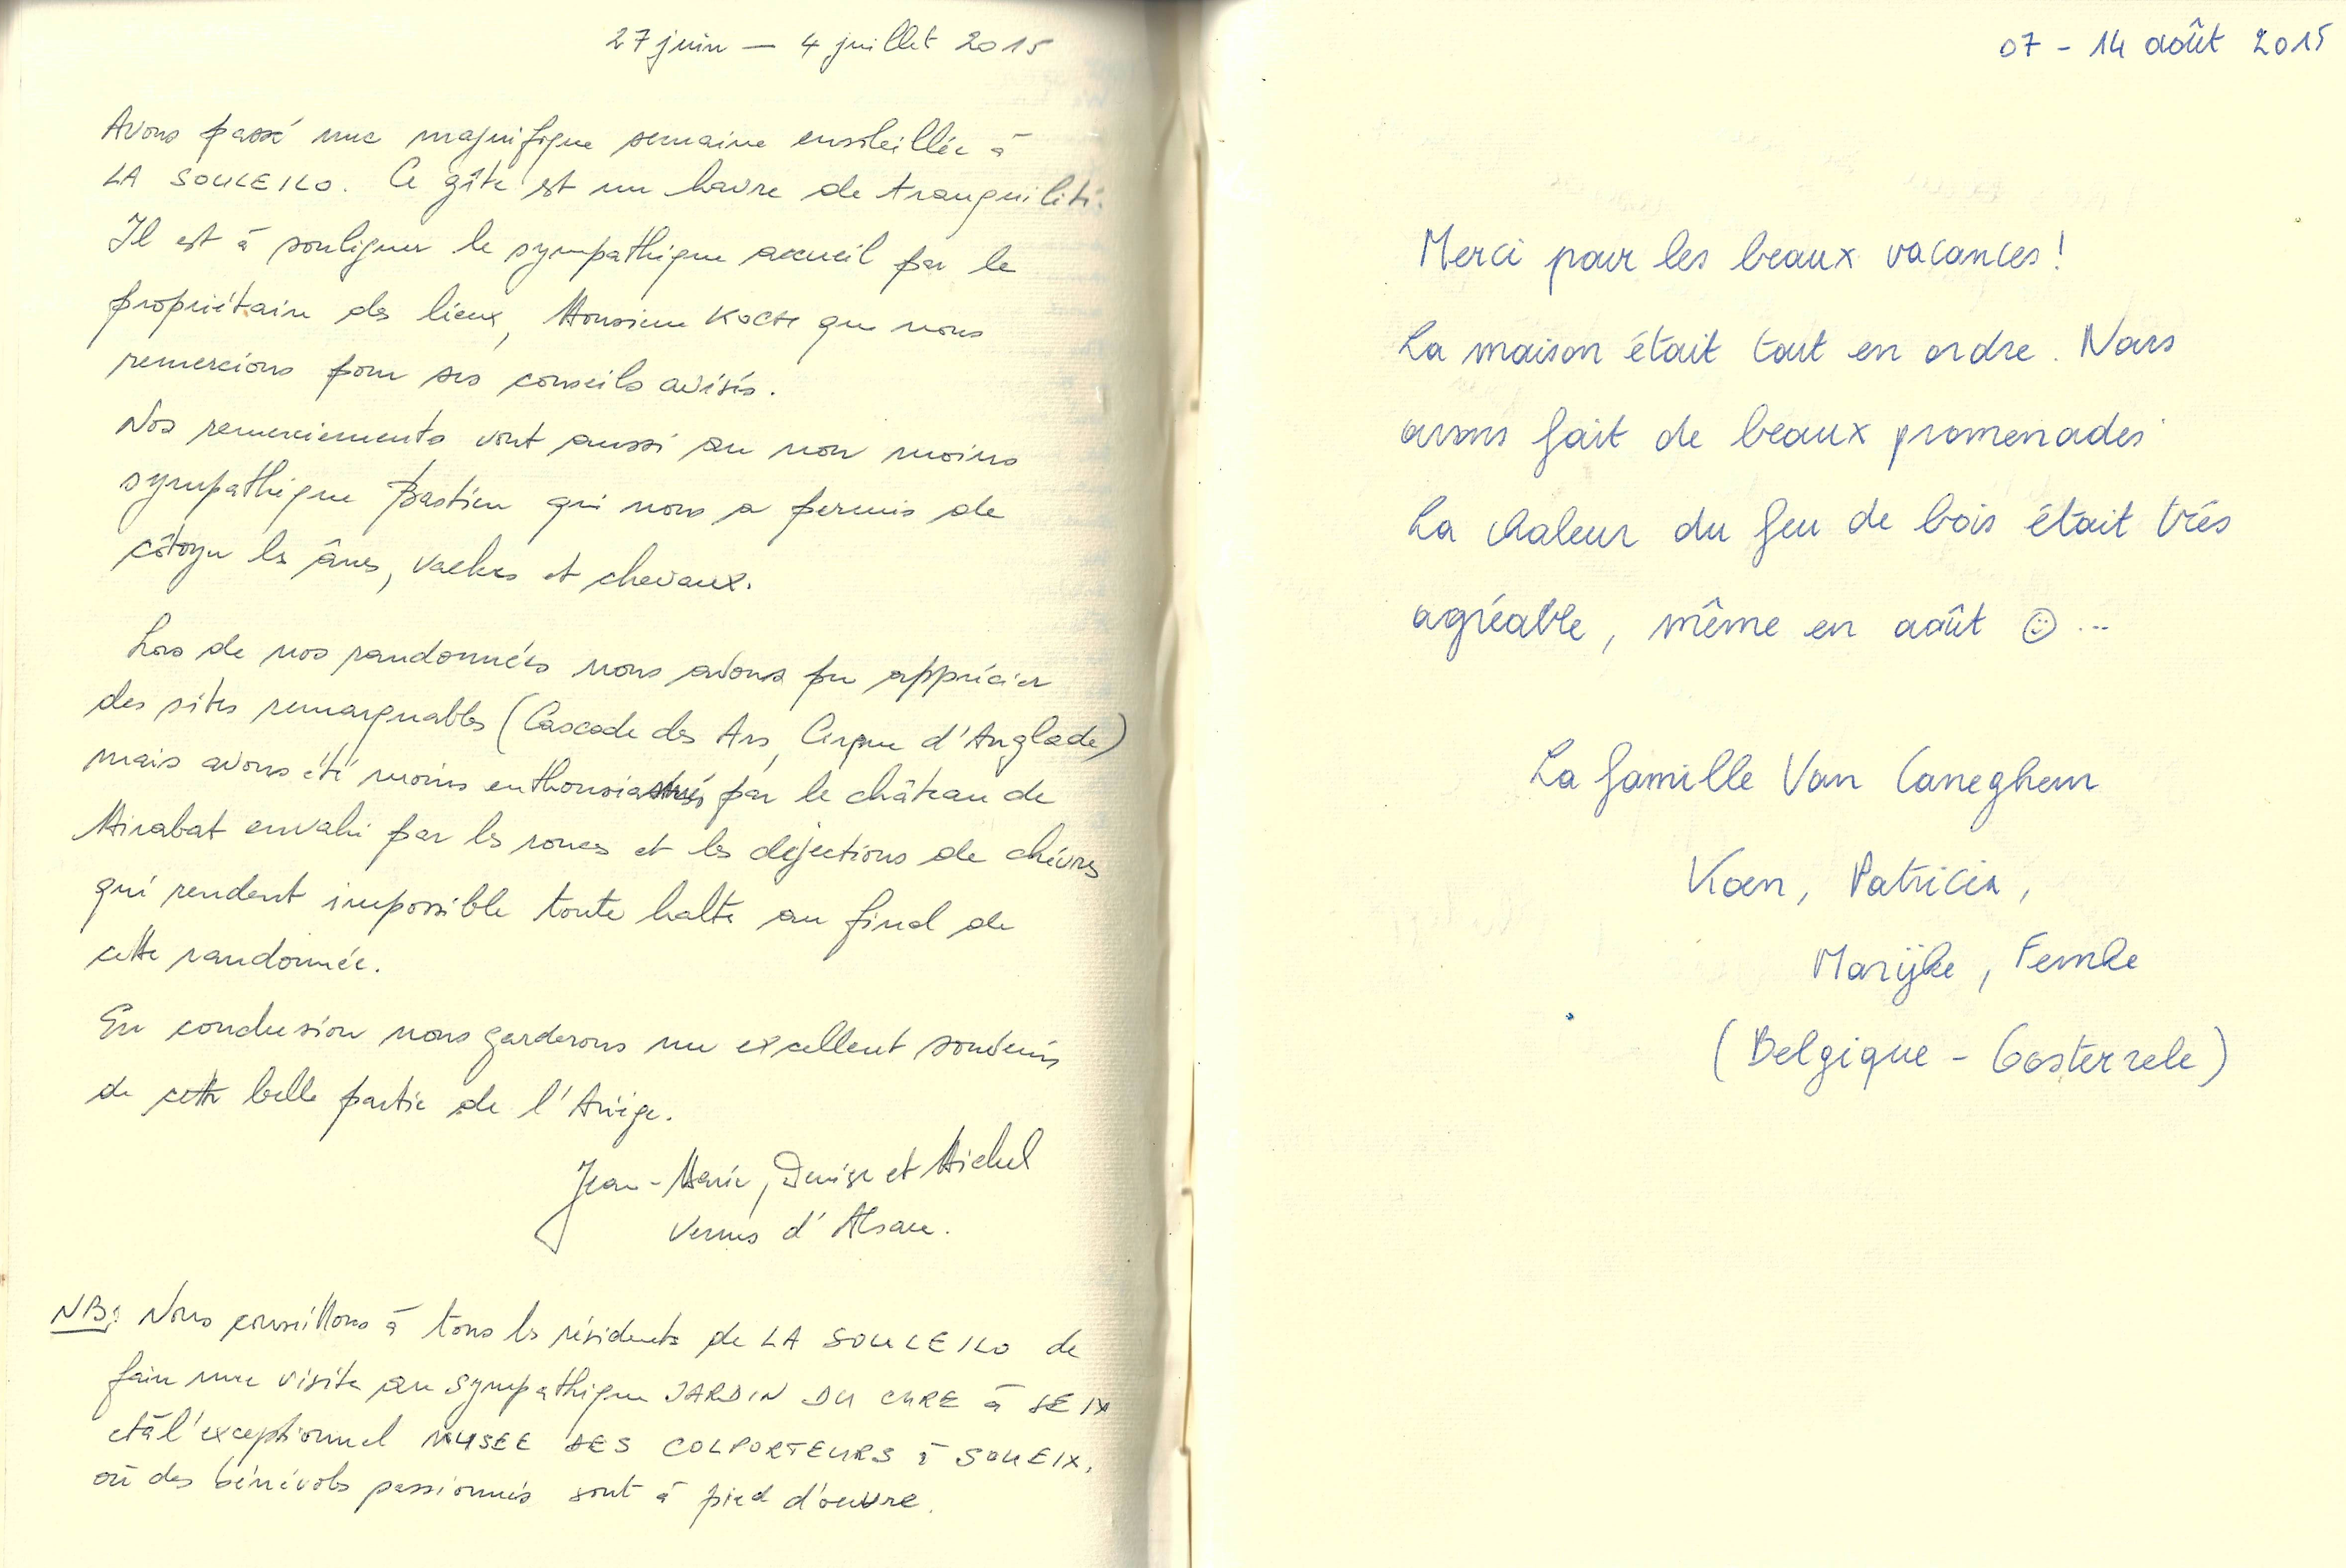 27 juin — 4 juillet 2015
Avons passé une magnifique semaine ensoleillée à
LA SOULEILO. Ce gîte est un havre de tranquilité.
Il est à souligner le sympathique accueil par le
propriétaire des lieux, Monsieur que nous
remercions pour ses conseils avisés.
Nos remerciements vont aussi au non moins
sympathique Bastien qui nous a permis de
côtoyer les ânes, vaches et chevaux.
Lors de nos randonnées nous avons pu apprécier
des sites remarquables (Cascade des Ars, Cirque d'Anglade)
mais avons été moins enthousiasmés par le château de
Mirabat envahi par les ronces et les déjections de chèvres
qui rendent impossible toute halte au final de
cette randonnée.
En conclusion nous garderons un excellent souvenir
de cette belle partie de l'Ariège.
Jean-Marie, Denise et Michel
Venus d'Alsace.
NB: Nous conseillons à tous les résidents de LA SOULEILO de
faire une visite au sympathique JARDIN DU CURE à SEIX
et à l'exceptionnel MUSEE DES COLPORTEURS à SOUEIX,
où des bénévoles passionnés sont à pied d'œuvre.
07 - 14 août 2015
Merci pour les beaux vacances!
La maison était tout en ordre. Nous
avons fait de beaux promenades
La chaleur du feu de bois était très
agréable, même en août ☺...
La famille Van Caneghem
Koen, Patricia,
Marijke, Femke
(Belgique - Oosterzele)